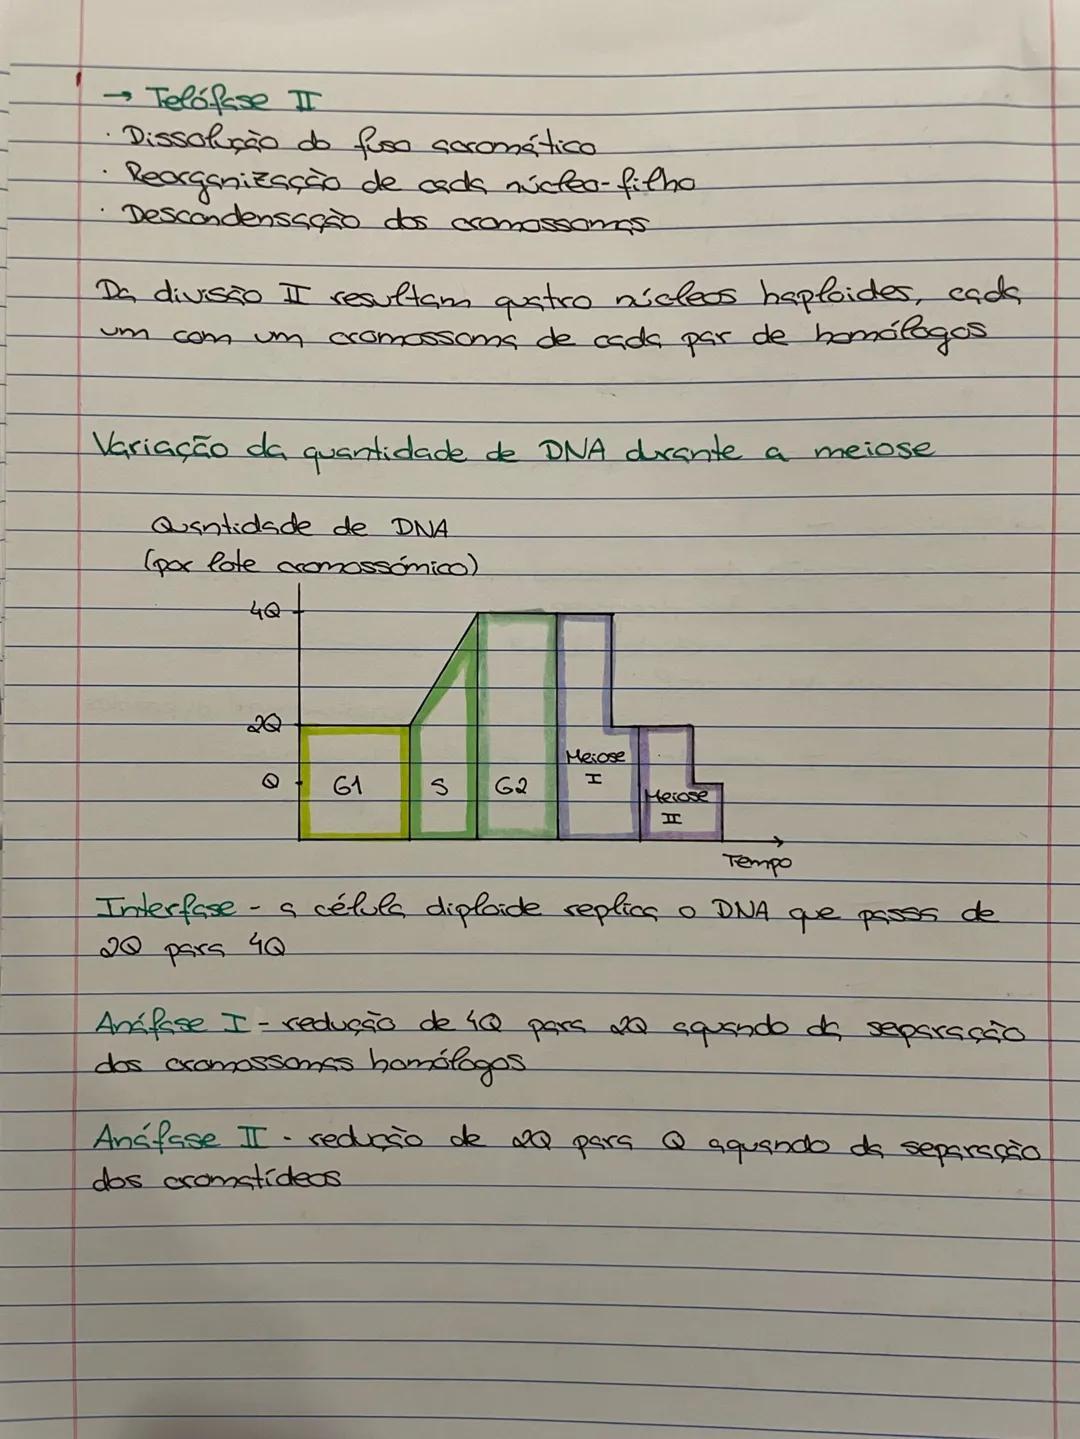 → Telófase II
· Dissolução do fuso acromático
· Reorganização de cada núcleo-filho
· Descondensação dos cromossomas
Da divisão II resultam quatro núcleos haploides, cada
um com um cromossoma de cada par de homólogos
Variação da quantidade de DNA durante a meiose
Quantidade de DNA
(por lote cromossómico)
4Q
2Q
Q
G1
S
G2
Meiose
I
Meiose
II
Tempo
Interfase - a célula diploide replica o DNA que passa de
2Q para 4Q
Anáfase I - redução de 4Q para 2Q aquando da separação
dos cromossomas homólogos
Anáfase II - redução de 2Q para Q aquando da separação
dos cromatídeos